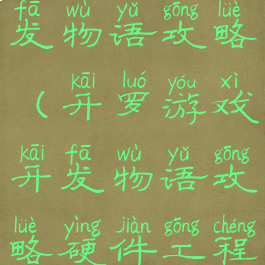 fā wù yǔ gōng lüè
发物语攻略
kāi luó yóu xì
（开罗游戏
kāi fā wù yǔ gōng
开发物语攻
lüè yìng jiàn gōng chéng
略硬件工程